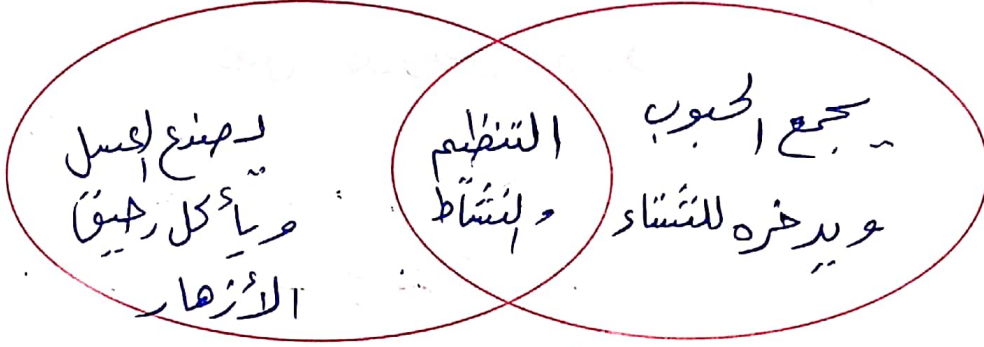 يجمع الحبوب
ويدخره للشتاء
التنظيم
والنشاط
يصنع العسل
ويأكل رحيق
الأزهار